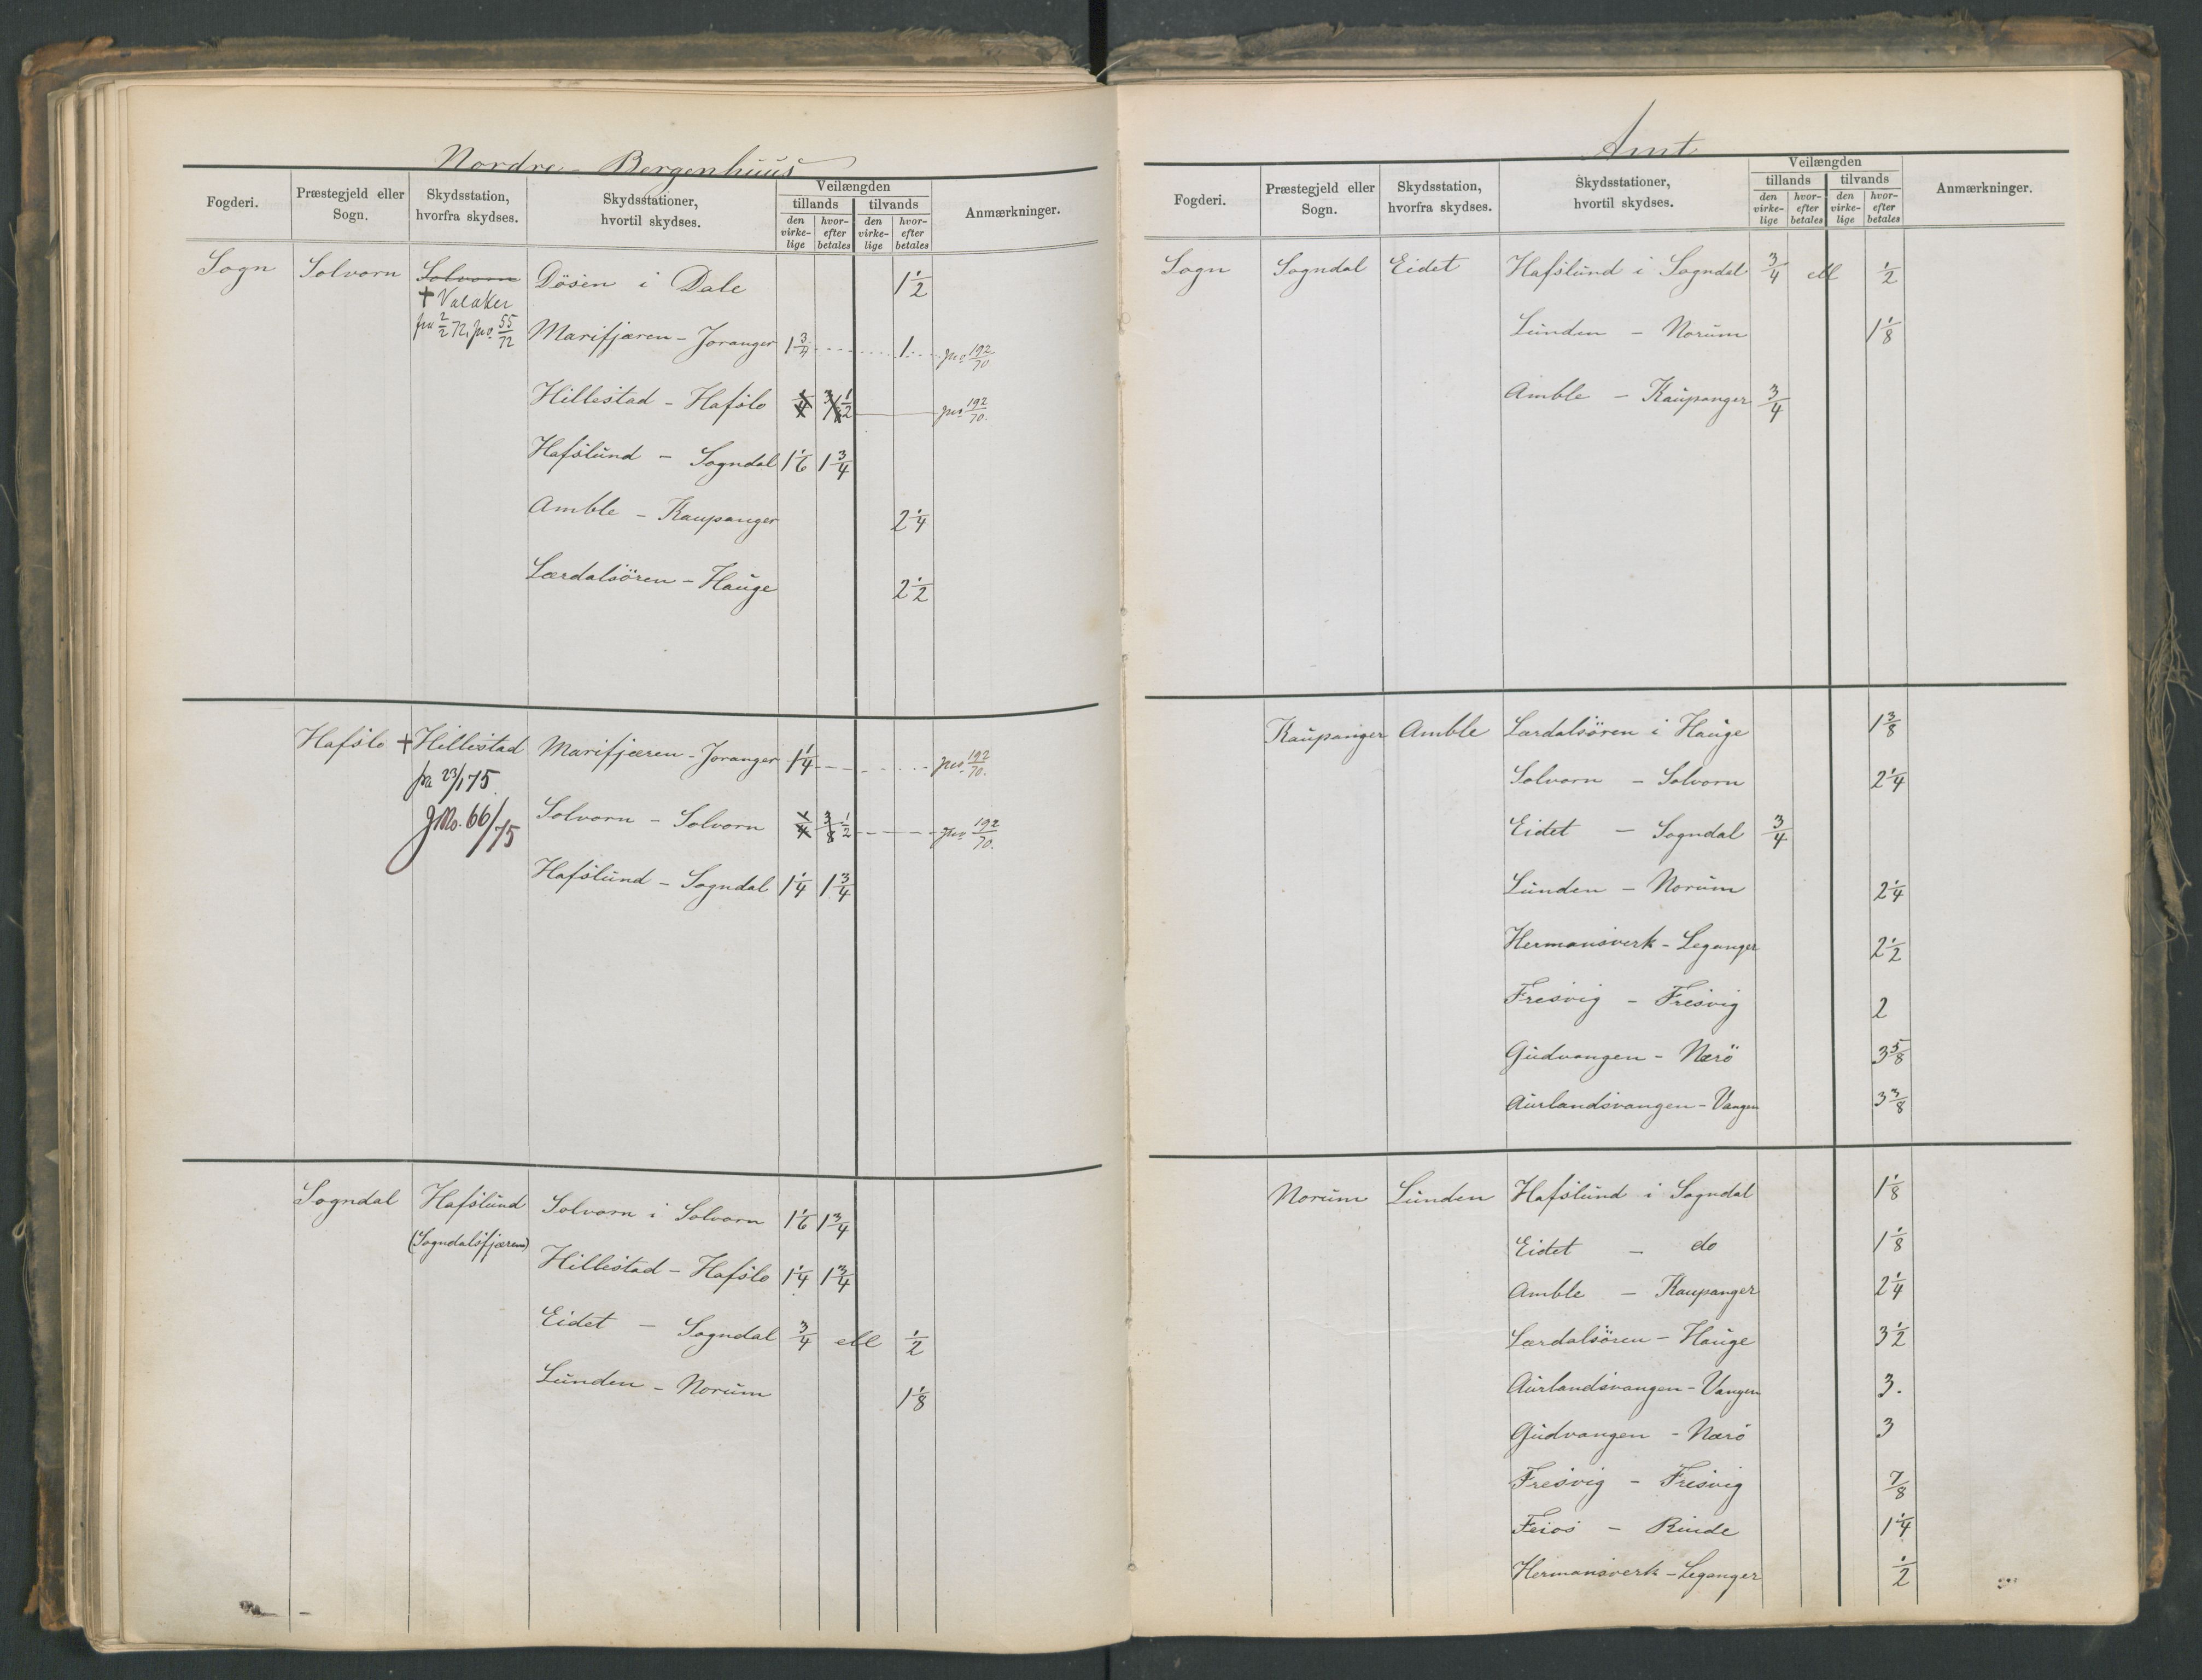 Nordre-Bergenhuus
Fogderi. Præstegjeld eller Sogn. Skydsstation, hvorfra skydses. Skydsstationer, hvortil skydses. Veilængden Anmærkninger.
tillands tilvands
den virkelige hvorefter betales den virkelige hvorefter betales
Sogn Solvorn Solvorn Dösen i Dale 1 1/2
+ Valaker
fra 2/2 72, jno. 55/72
Marifjæren - Joranger 1 3/4 1 jno 192/70
Hillestad - Hafslo 1/4 3/8 1/2 jno 192/70.
Hafslund - Sogndal 1 1/6 1 3/4
Amble - Kaupanger 2 1/4
Lærdalsören - Hauge 2 1/2
Hafslo + Hillestad Marifjæren - Joranger 1 1/4 jno 192/70.
fra 23/1 75.
JNo. 66/75
Solvorn - Solvorn 1/4 3/8 1/2 jno 192/70.
Hafslund - Sogndal 1 1/4 1 3/4
Sogndal Hafslund Solvorn i Solvorn 1 1/6 1 3/4
(Sogndalsfjæren)
Hillestad - Hafslo 1 1/4 1 3/4
Eidet - Sogndal 3/4 ell 1/2
Lunden - Norum 1 1/8
Amt
Fogderi. Præstegjeld eller Sogn. Skydsstation, hvorfra skydses. Skydsstationer, hvortil skydses. Veilængden Anmærkninger.
tillands tilvands
den virkelige hvorefter betales den virkelige hvorefter betales
Sogn Sogndal Eidet Hafslund i Sogndal 3/4 ell 1/2
Lunden - Norum 1 1/8
Amble - Kaupanger 3/4
Kaupanger Amble Lærdalsören i Hauge 1 3/8
Solvorn - Solvorn 2 1/4
Eidet - Sogndal 3/4
Lunden - Norum 2 1/4
Hermansverk - Leganger 2 1/2
Fresvig - Fresvig 2
Gudvangen - Nærö 3 5/8
Aurlandsvangen - Vangen 3 3/8
Norum Lunden Hafslund i Sogndal 1 1/8
Eidet - do 1 1/8
Amble - Kaupanger 2 1/4
Lærdalsören - Hauge 3 1/2
Aurlandsvangen - Vangen 3.
Gudvangen - Nærö 3
Fresvig - Fresvig 7/8
Feios - Rinde 1 1/4
Hermansverk - Leganger 1/2